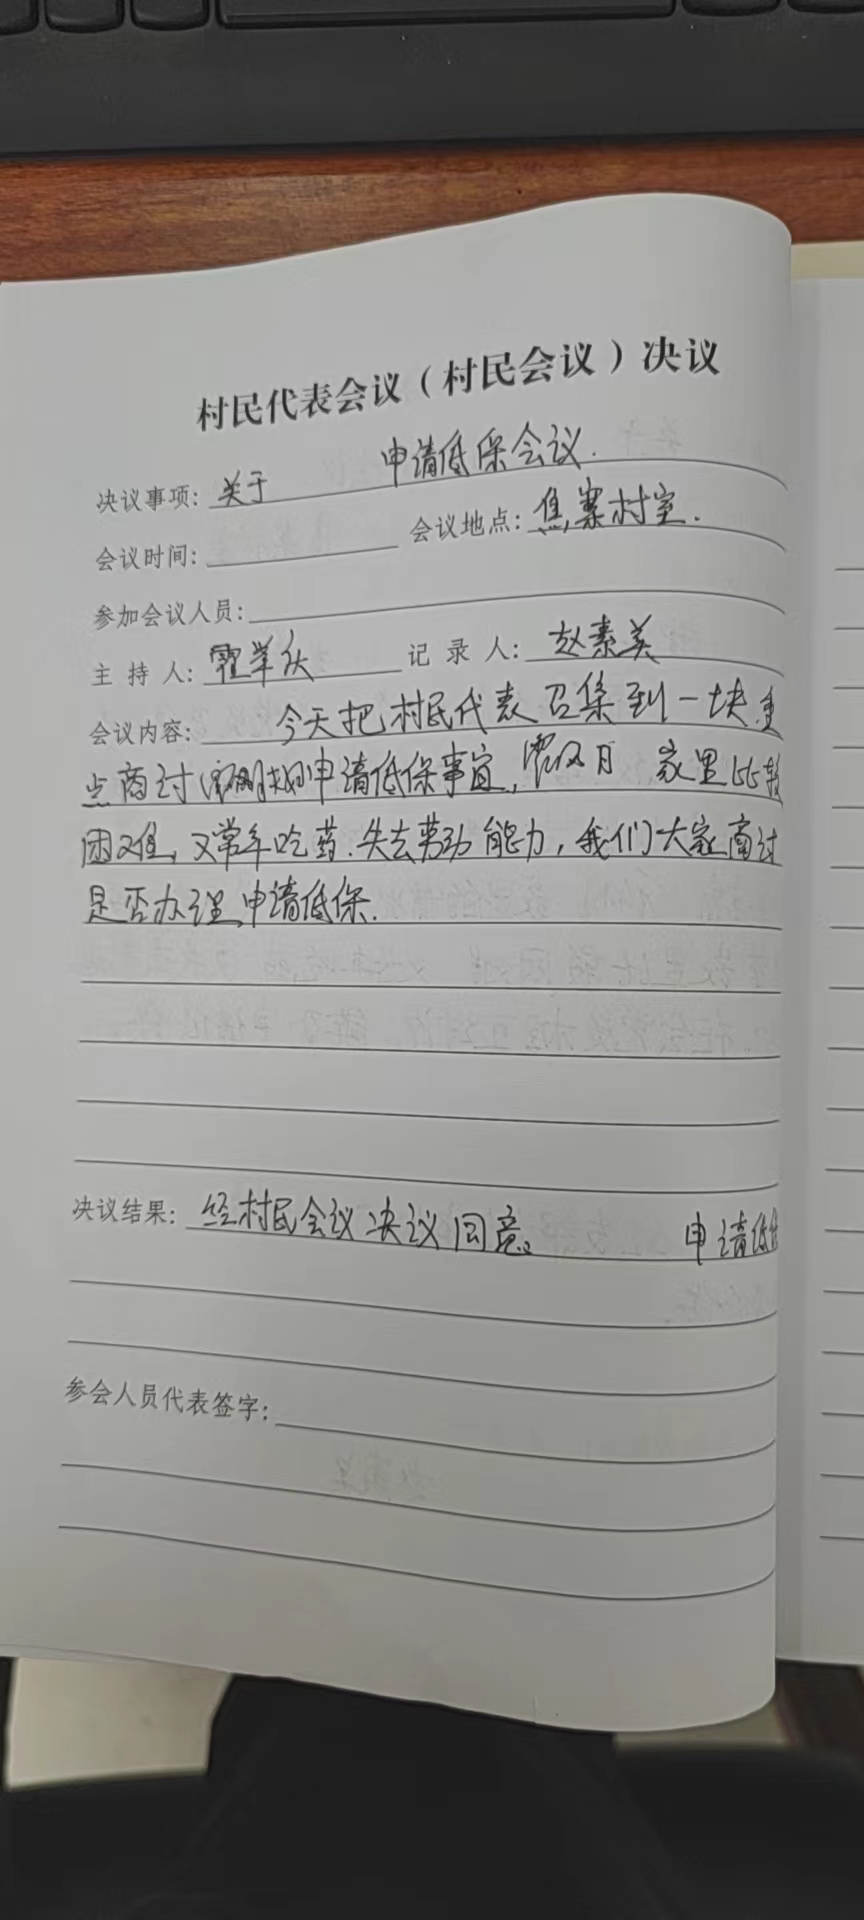 村民代表会议（村民会议）决议
决议事项：关于 申请低保会议.
会议时间： 会议地点：焦寨村室.
参加会议人员：
主持人：霍学 记录人：赵素美
会议内容： 今天把村民代表召集到一块重
点商讨 申请低保事宜, 家里比较
困难，又常年吃药.失去劳动能力，我们大家商讨
是否办理申请低保.
决议结果：经村民会议决议同意 申请低保
参会人员代表签字：